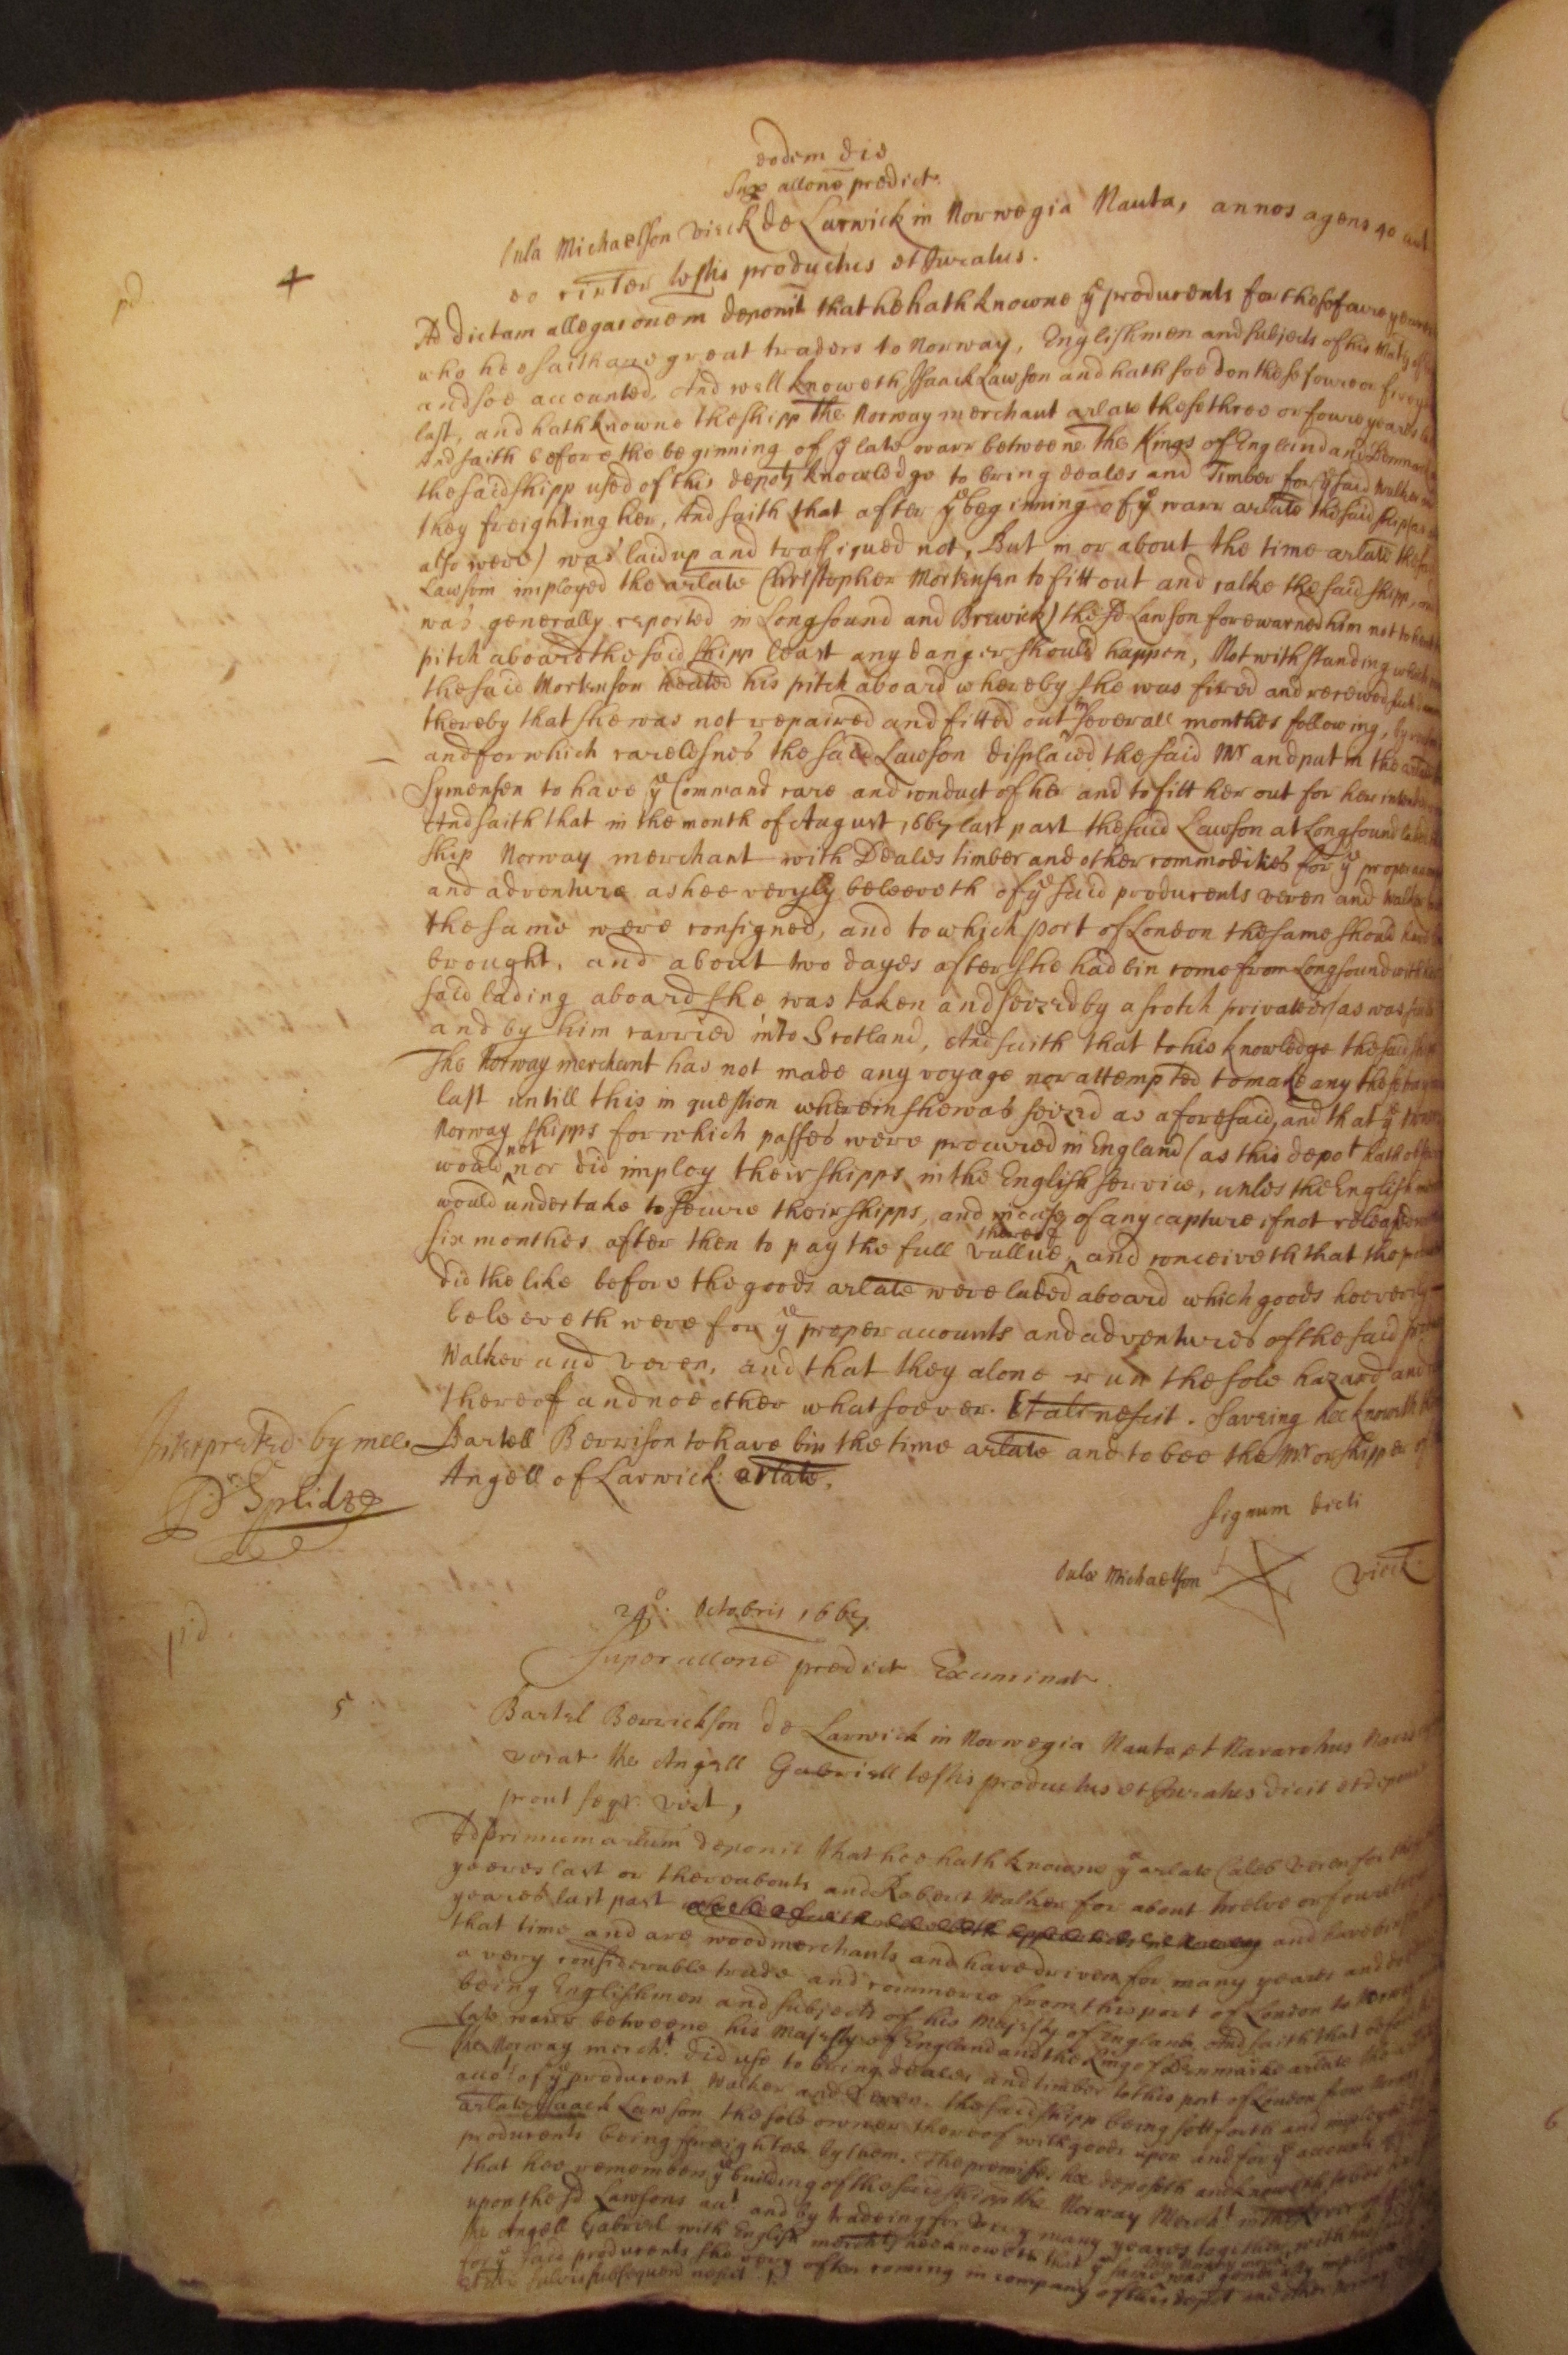 eodem die
Sup allone predict.
pd
4
Oula Michaelson Vieck de Larwick in Norwegia Nauta, annos agens 40 aut
eo circiter testis productus et Juratus.
Ad dictam allegaconem deponit that he hath knowne ye producents for these foure yeares
who hee saith are great traders to Norway, Englishmen and subjects of his Maty of
and soe accounted, And well knoweth Isaack Lawson and hath soe don these foure or five
last, and hath knowne the shipp the Norway merchant arlate these three or foure yeares
And saith before the beginning of ye late warr betweene the Kings of England and Denmark
the said shipp used of this depots knowledge to bring deales and Timber for ye said Walker and
they freighting her, And saith that after ye beginning of ye warr arlate the said ship (as
also were) was laid up and traffiqued not, But in or about the time arlate the said
Lawson imployed the arlate Christopher Mortensen to fitt out and calke the said shipp, and
was generally reported in Longsound and Brewick) the sd Lawson forewarned him not to heat
pitch aboard the said shipp least any danger should happen, Notwithstanding which
the said Mortenson heated his pitch aboard whereby she was fired and received such
thereby that she was not repaired and fitted out in severall monthes following, by
and for which carelesnes the said Lawson displaced the said Mr and put in the arlate
Symensen to have ye Command care and conduct of her and to fitt her out for her intended
And saith that in the month of August 1667 last past the said Lawson at Longsound laded
ship Norway merchant with Deales timber and other commodities for ye proper account
and adventure as hee veryly beleeveth of ye said producents Veren and Walker
the same were consigned, and to which port of London the same should have
brought, and about two dayes after she had bin come from Longsound with her
said lading aboard she was taken and seized by a Scotch privateer (as was said
and by him carried into Scotland, And saith that to his knowledge the said shipp
The Norway merchant has not made any voyage nor attempted to make any these
last untill this in question wherein she was seized as aforesaid, and that ye
Norway shipps for which passes were procured in England (as this depot hath
would not nor did imploy their shipps in the English service, unles the English
would undertake to secure their shipps, and in case of any capture if not released
six monthes after then to pay the full vallue thereof, and conceiveth that the
did the like before the goods arlate were laded aboard which goods hee veryly
beleeveth were for ye proper accounts and adventures of the said
Walker and Veren, and that they alone run the sole hazard and
thereof and noe other whatsoever. Et aliter nescit. Saveing hee knoweth the
Bartell Berrison to have bin the time arlate and to bee the Mr or skipper of
Angell of Larwick arlate.
Interpreted by mee
Signum dicti
Oula Michaelson Vieck
24o. Octobris 1667
Super allone predict Examinat.
pd
5
Bartel Berrickson de Larwick in Norwegia Nauta et Navarchus Navis
vocat the Angell Gabriell testis productus et Juratus dicit et deponit
prout seqr. vizt,
Ad primum arlum deponit that hee hath knowne ye arlate Caleb Veren for
yeares last or thereabouts and Robert Walker for about twelve or foureteene
yeares last past and have bin
that time and are woodmerchants and have driven for many yeares and
a very considerable trade and commerce from this port of London to Norway
being Englishmen and subjects of his Majesty of England, And saith that before the
late warr betweene his Majesty of England and the King of Denmarke arlate the
the Norway mercht. did use to bring deales and timber to this port of London from Norway
acct of ye producent Walker and Veren, the said shipp being sett forth and imployed
arlate Isaack Lawson the sole owner thereof with goods upon and for ye accounts of
producents being freighted by them. The premisses hee deposeth and knoweth to bee
that hee remembers ye building of the said shipp the Norway Mercht
upon the sd Lawsons acct and by tradeing for very many yeares together with
the Angell Gabriel with English merchts hee knoweth that ye said
for ye said producents she very often coming in company of this depot and other Norway